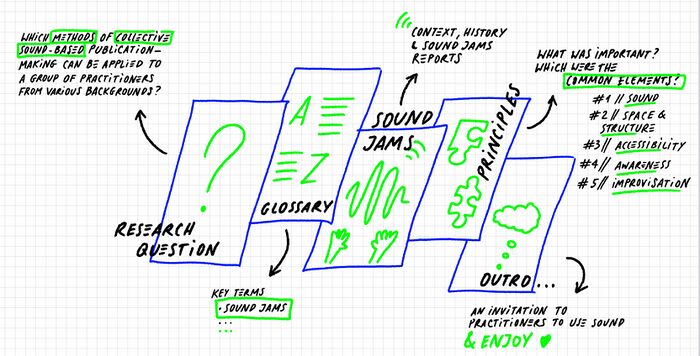 WHICH METHODS OF COLLECTIVE
SOUND-BASED PUBLICATION-
MAKING CAN BE APPLIED TO
A GROUP OF PRACTITIONERS
FROM VARIOUS BACKGROUNDS?
RESEARCH
QUESTION
A
Z
GLOSSARY
KEY TERMS
· SOUND JAMS
CONTEXT, HISTORY
& SOUND JAMS
REPORTS
SOUND
JAMS
PRINCIPLES
WHAT WAS IMPORTANT?
WHICH WERE THE
COMMON ELEMENTS?
#1 // SOUND
#2 // SPACE &
STRUCTURE
#3 // ACCESSIBILITY
#4 // AWARENESS
#5 // IMPROVISATION
OUTRO...
AN INVITATION TO
PRACTITIONERS TO USE SOUND
& ENJOY